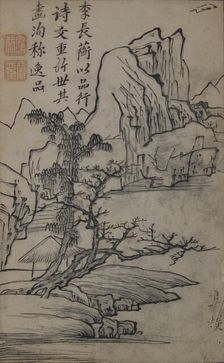 李長蘅以品行
詩文重於世其
畫洵称逸品